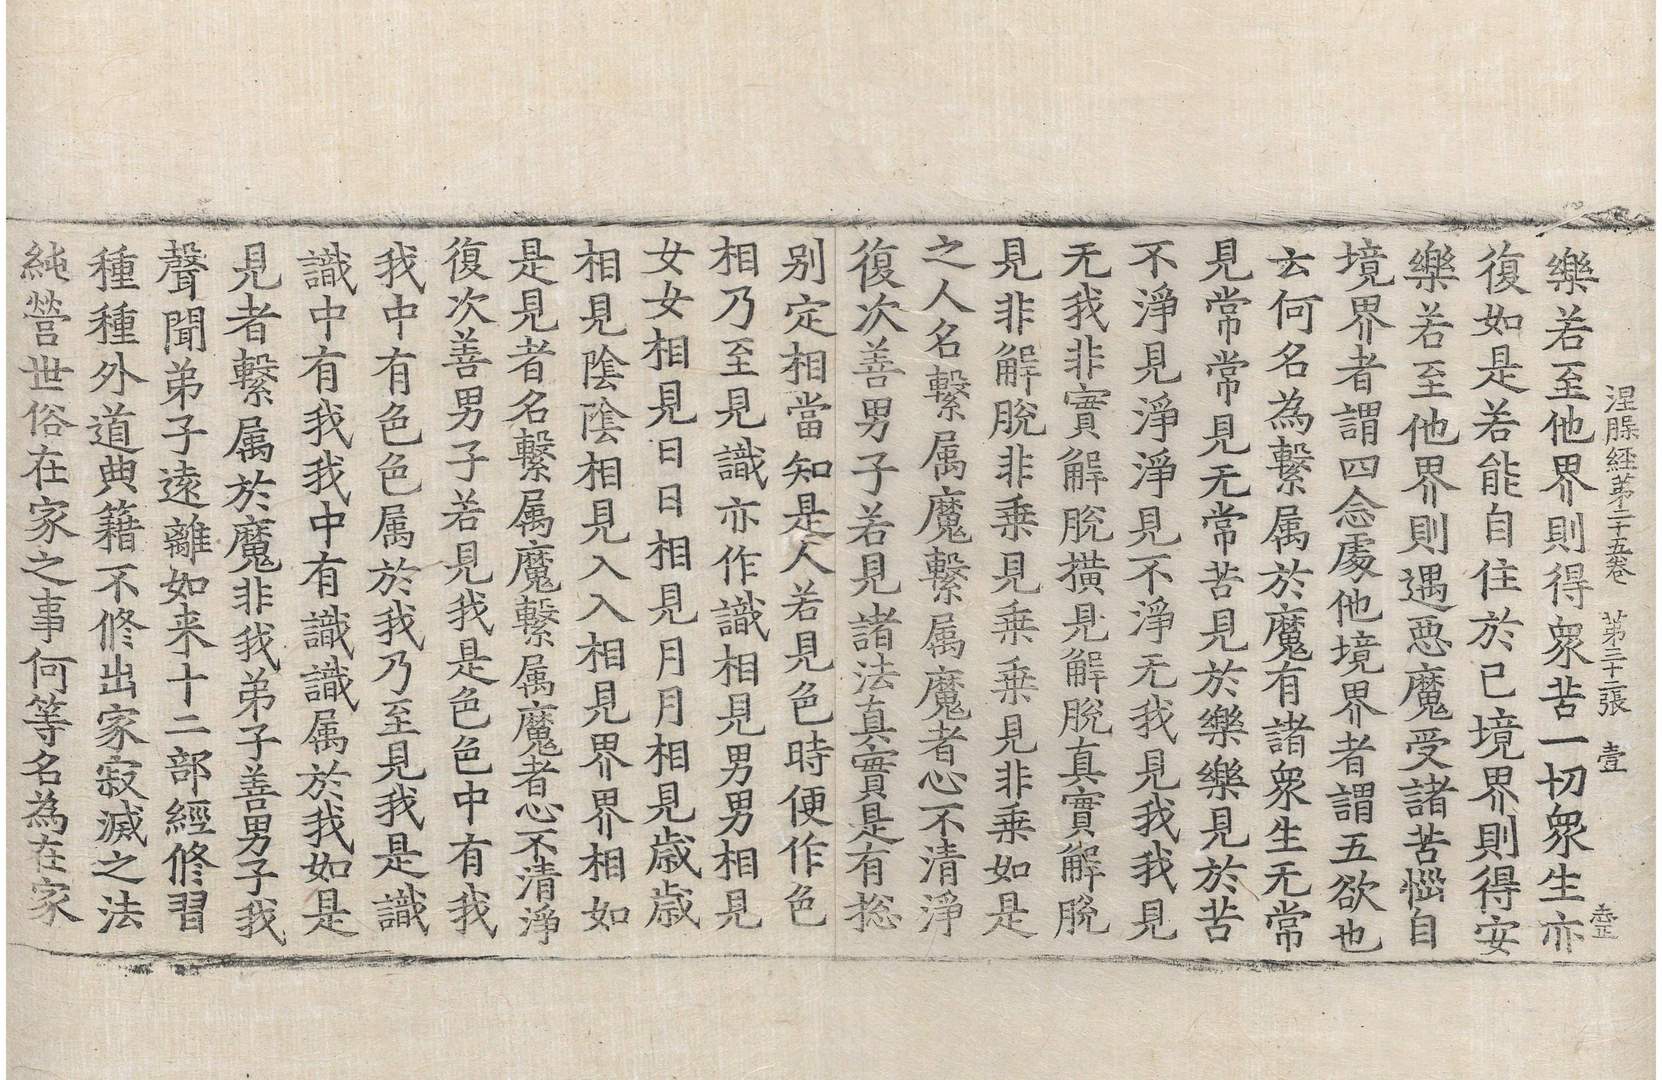 涅槃經第二十五卷　第二十二張　壹
樂若至他界則得衆苦一切衆生亦
復如是若能自住於已境界則得安
樂若至他界則遇惡魔受諸苦惱自
境界者謂四念處他境界者謂五欲也
云何名為繫属於魔有諸衆生无常
見常常見无常苦見於樂樂見於苦
不淨見淨淨見不淨无我見我我見
无我非實解脫橫見解脫真實解脫
見非解脫非乗見乗乗見非乗如是
之人名繫属魔繫属魔者心不清淨
復次善男子若見諸法真實是有揔
别定相當知是人若見色時便作色
相乃至見識亦作識相見男男相見
女女相見日日相見月月相見歲歲
相見陰陰相見入入相見界界相如
是見者名繫属魔繫属魔者心不清淨
復次善男子若見我是色色中有我
我中有色色属於我乃至見我是識
識中有我我中有識識属於我如是
見者繫属於魔非我弟子善男子我
聲聞弟子遠離如来十二部經修習
種種外道典籍不修出家寂滅之法
純營世俗在家之事何等名為在家